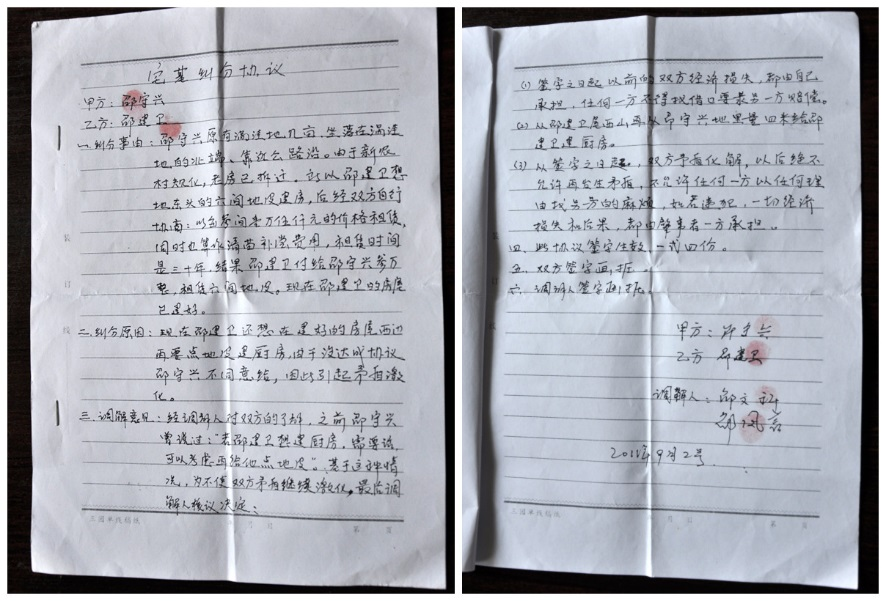 宅基纠纷协议
甲方：邵守兴
乙方：邵建卫
一.纠纷事由：邵守兴原有洼地几亩，坐落在
地的北端、靠近公路沿。由于新农
村规化，老房已拆迁，所以邵建卫想
地东头的六间地皮建房，后经双方自行
协商：以每间万伍仟元的价格租售，
同时也算作清苗补偿费用，租售时间
是三十年，结果邵建卫付给邵守兴叁万
整，租售六间地皮。现在邵建卫的房屋
已建好。
二.纠纷原因：现在邵建卫还想在建好的房屋西边
再要点地皮建厨房，由于没达成协议
邵守兴不同意给，因此引起矛盾激
化。
三.调解意见：经调解人对双方的了解，之前邵守兴
曾说过："若邵建卫想建厨房，需要该
可以考虑再给他点地皮"。基于这种情
况，为不使双方矛盾继续激化。最后调
解人核议决定：
三圆单线稿纸
月 日
第 页
(1) 签字之日起以前的双方经济损失，都由自己
承担，任何一方不得找借口要求另一方赔偿。
(2) 从邵建卫屋西山再从邵守兴地里量四米给邵
建卫建厨房。
(3) 从签字之日起，双方矛盾化解，以后绝不
允许再发生矛盾，不允许任何一方以任何理
由找另一方的麻烦，如若违犯，一切经济
损失和后果，都由肇事者一方承担。
四.此协议签字生效，一式四份。
五.双方签字画押。
六.调解人签字画押。
甲方：邵守兴
乙方 邵建卫
调解人：邵文科
邵凤言
2011年9月2号
三圆单线稿纸
月 日
第 页